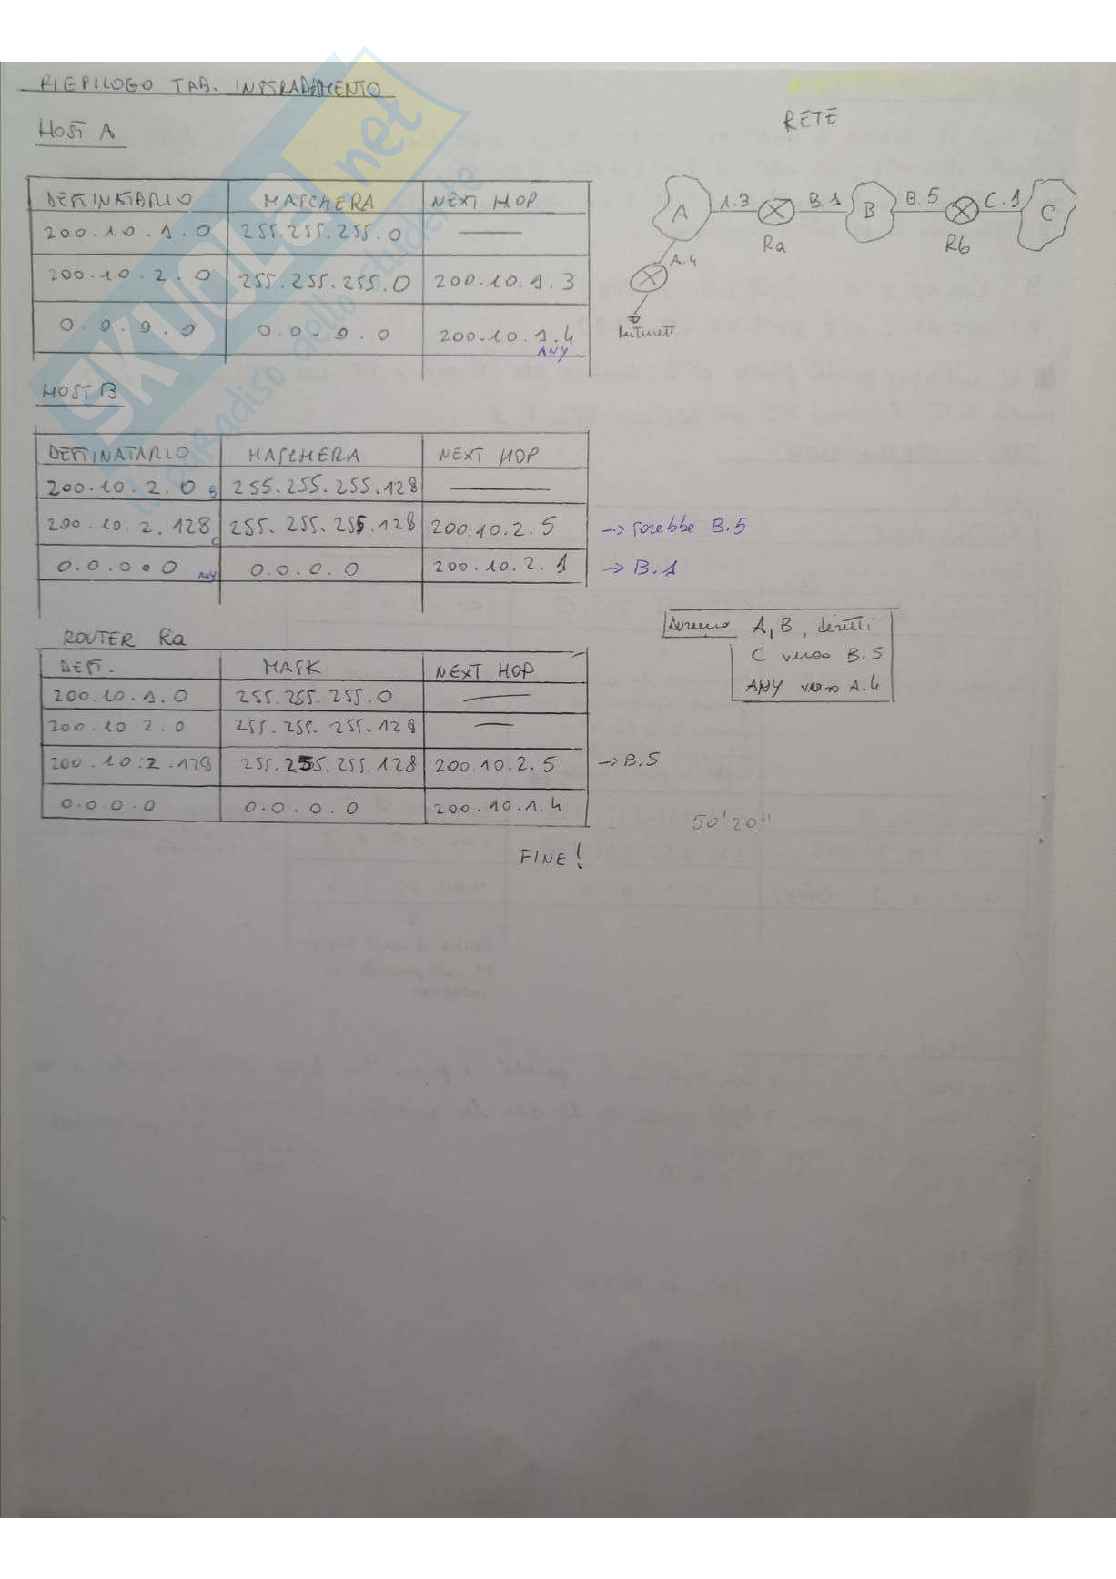 RIEPILOGO TAB. INSTRADAMENTO
HOST A
RETE
DESTINATARIO MASCHERA NEXT HOP
200.10.1.0 255.255.255.0 —
200.10.2.0 255.255.255.0 200.10.1.3
0.0.0.0 0.0.0.0 200.10.1.4
ANY
A 1.3 B.1 B B.5 C.1 C
Ra Rb
A.4
Internet
HOST B
DESTINATARIO MASCHERA NEXT HOP
200.10.2.0 B 255.255.255.128 —
200.10.2.128 C 255.255.255.128 200.10.2.5 -> sarebbe B.5
0.0.0.0 ANY 0.0.0.0 200.10.2.1 -> B.1
ROUTER Ra
DEST. MASK NEXT HOP
200.10.1.0 255.255.255.0 —
200.10.2.0 255.255.255.128 —
200.10.2.128 255.255.255.128 200.10.2.5 -> B.5
0.0.0.0 0.0.0.0 200.10.1.4
A, B, diretti
C verso B.5
ANY verso A.4
50'20"
FINE!
SKUOLA.net
il paradiso dello studente